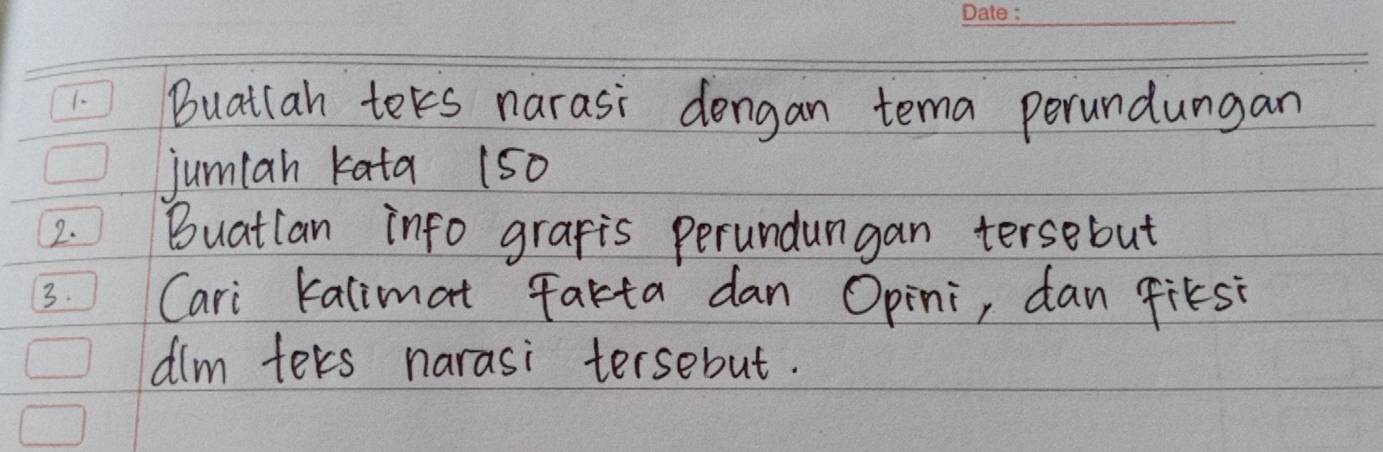 Date :
1. Buatlah teks narasi dengan tema perundungan
jumlah kata 150
2. Buatlan info grafis perundungan tersebut
3. Cari kalimat fakta dan Opini, dan fiksi
dlm teks narasi tersebut.